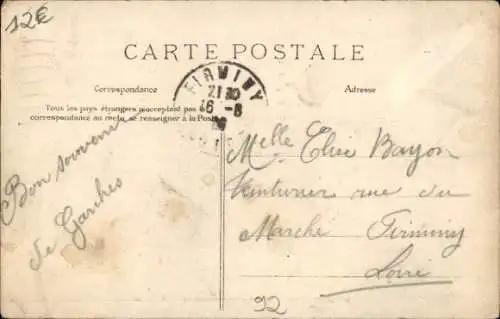 12€
CARTE POSTALE
Correspondance
Adresse
Tous les pays étrangers n'acceptant pas la
correspondance au recto, se renseigner à la Poste
FIRMINY
21 30
16 - 8
Bon souvenir
de Garches
Melle Elise Bayon
rue du
Marche Firminy
Loire
92